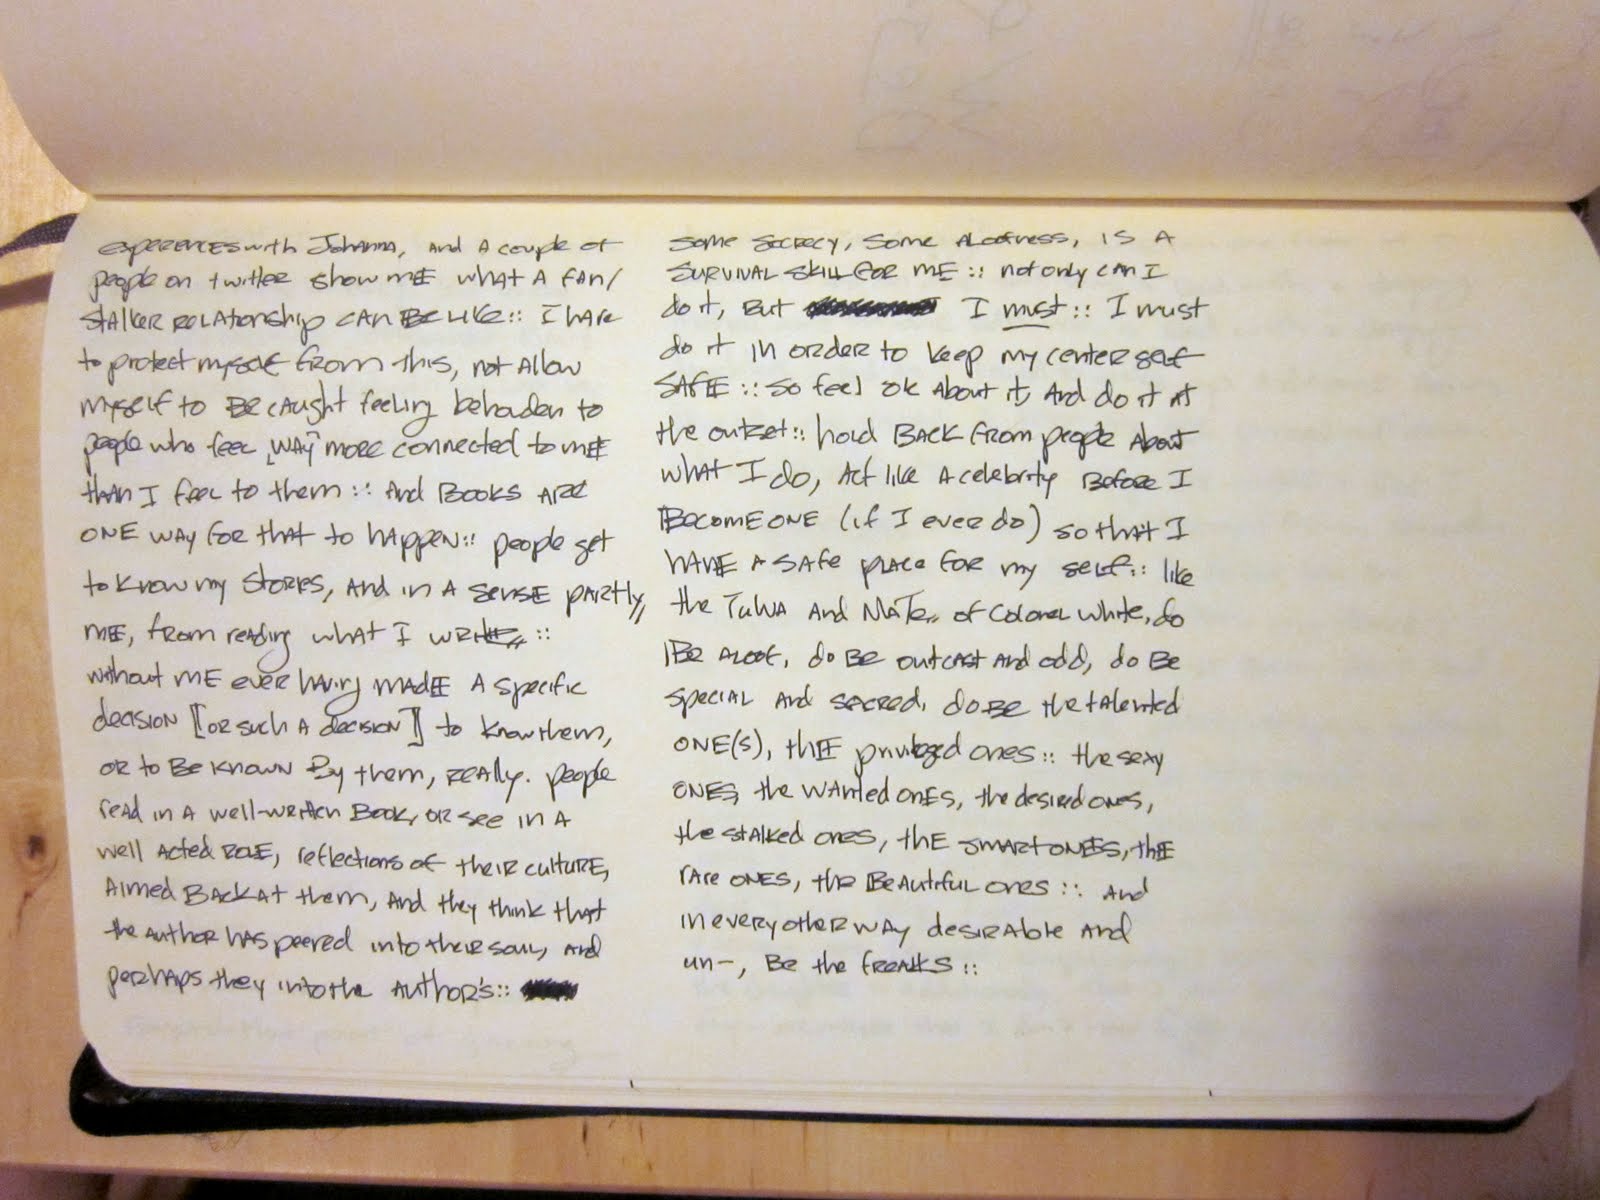 experiences with Johanna, and a couple of
people on twitter show me what a fan/
stalker relationship can be like :: I have
to protect myself from this, not allow
myself to be caught feeling beholden to
people who feel [way] more connected to me
than I feel to them :: And books are
one way for that to happen :: people get
to know my stories, and in a sense partly,
me, from reading what I write ::
without me ever having made a specific
decision [[or such a decision]] to know them,
or to be known by them, really. people
read in a well-written book, or see in a
well acted role, reflections of their culture,
aimed back at them, and they think that
the author has peered into their soul, and
perhaps they into the author's ::
some secrecy, some aloofness, is a
survival skill for me :: not only can I
do it, but I must :: I must
do it in order to keep my center self
safe :: so feel ok about it, and do it at
the outset :: hold back from people about
what I do, act like a celebrity before I
become one (if I ever do) so that I
have a safe place for my self :: like
the Tulwa and of Colonel White, do
be aloof, do be outcast and odd, do be
special and sacred, do be the talented
one(s), the privileged ones :: the sexy
ones, the wanted ones, the desired ones,
the stalked ones, the smart ones, the
rare ones, the beautiful ones :: and
in every other way desirable and
un-, be the freaks ::